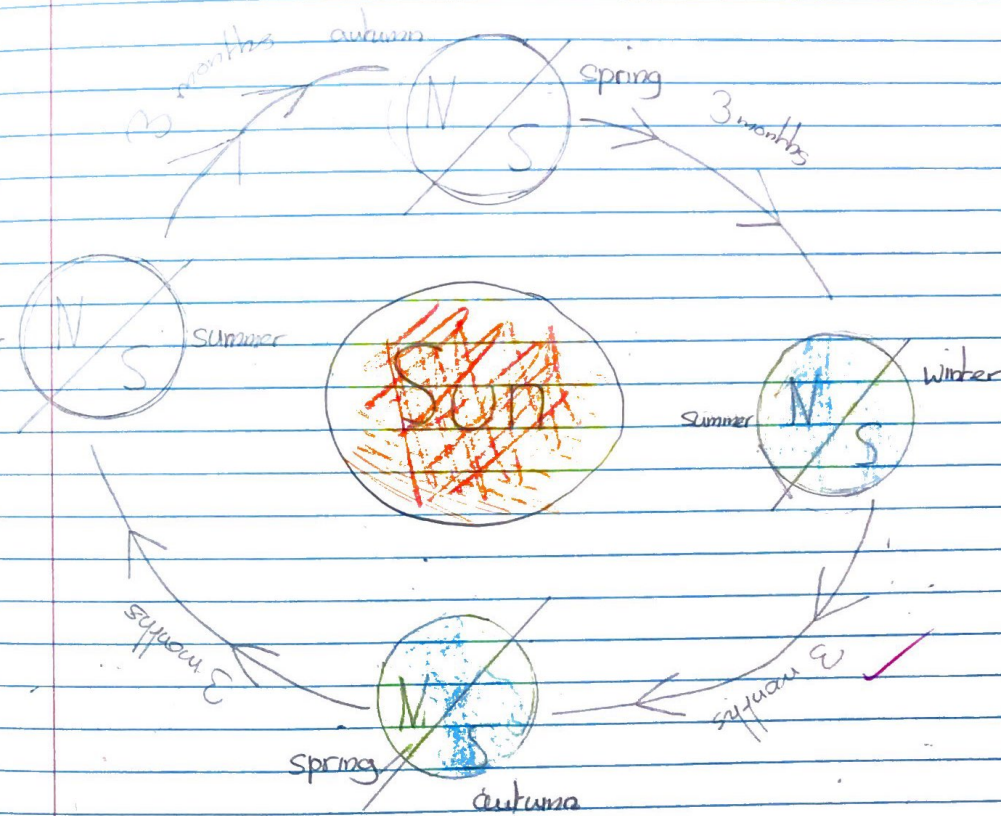 3 months
autumn
N
S
spring
3 months
N
S
summer
Sun
summer
N
S
winter
3 months
3 months
N
S
spring
autumn